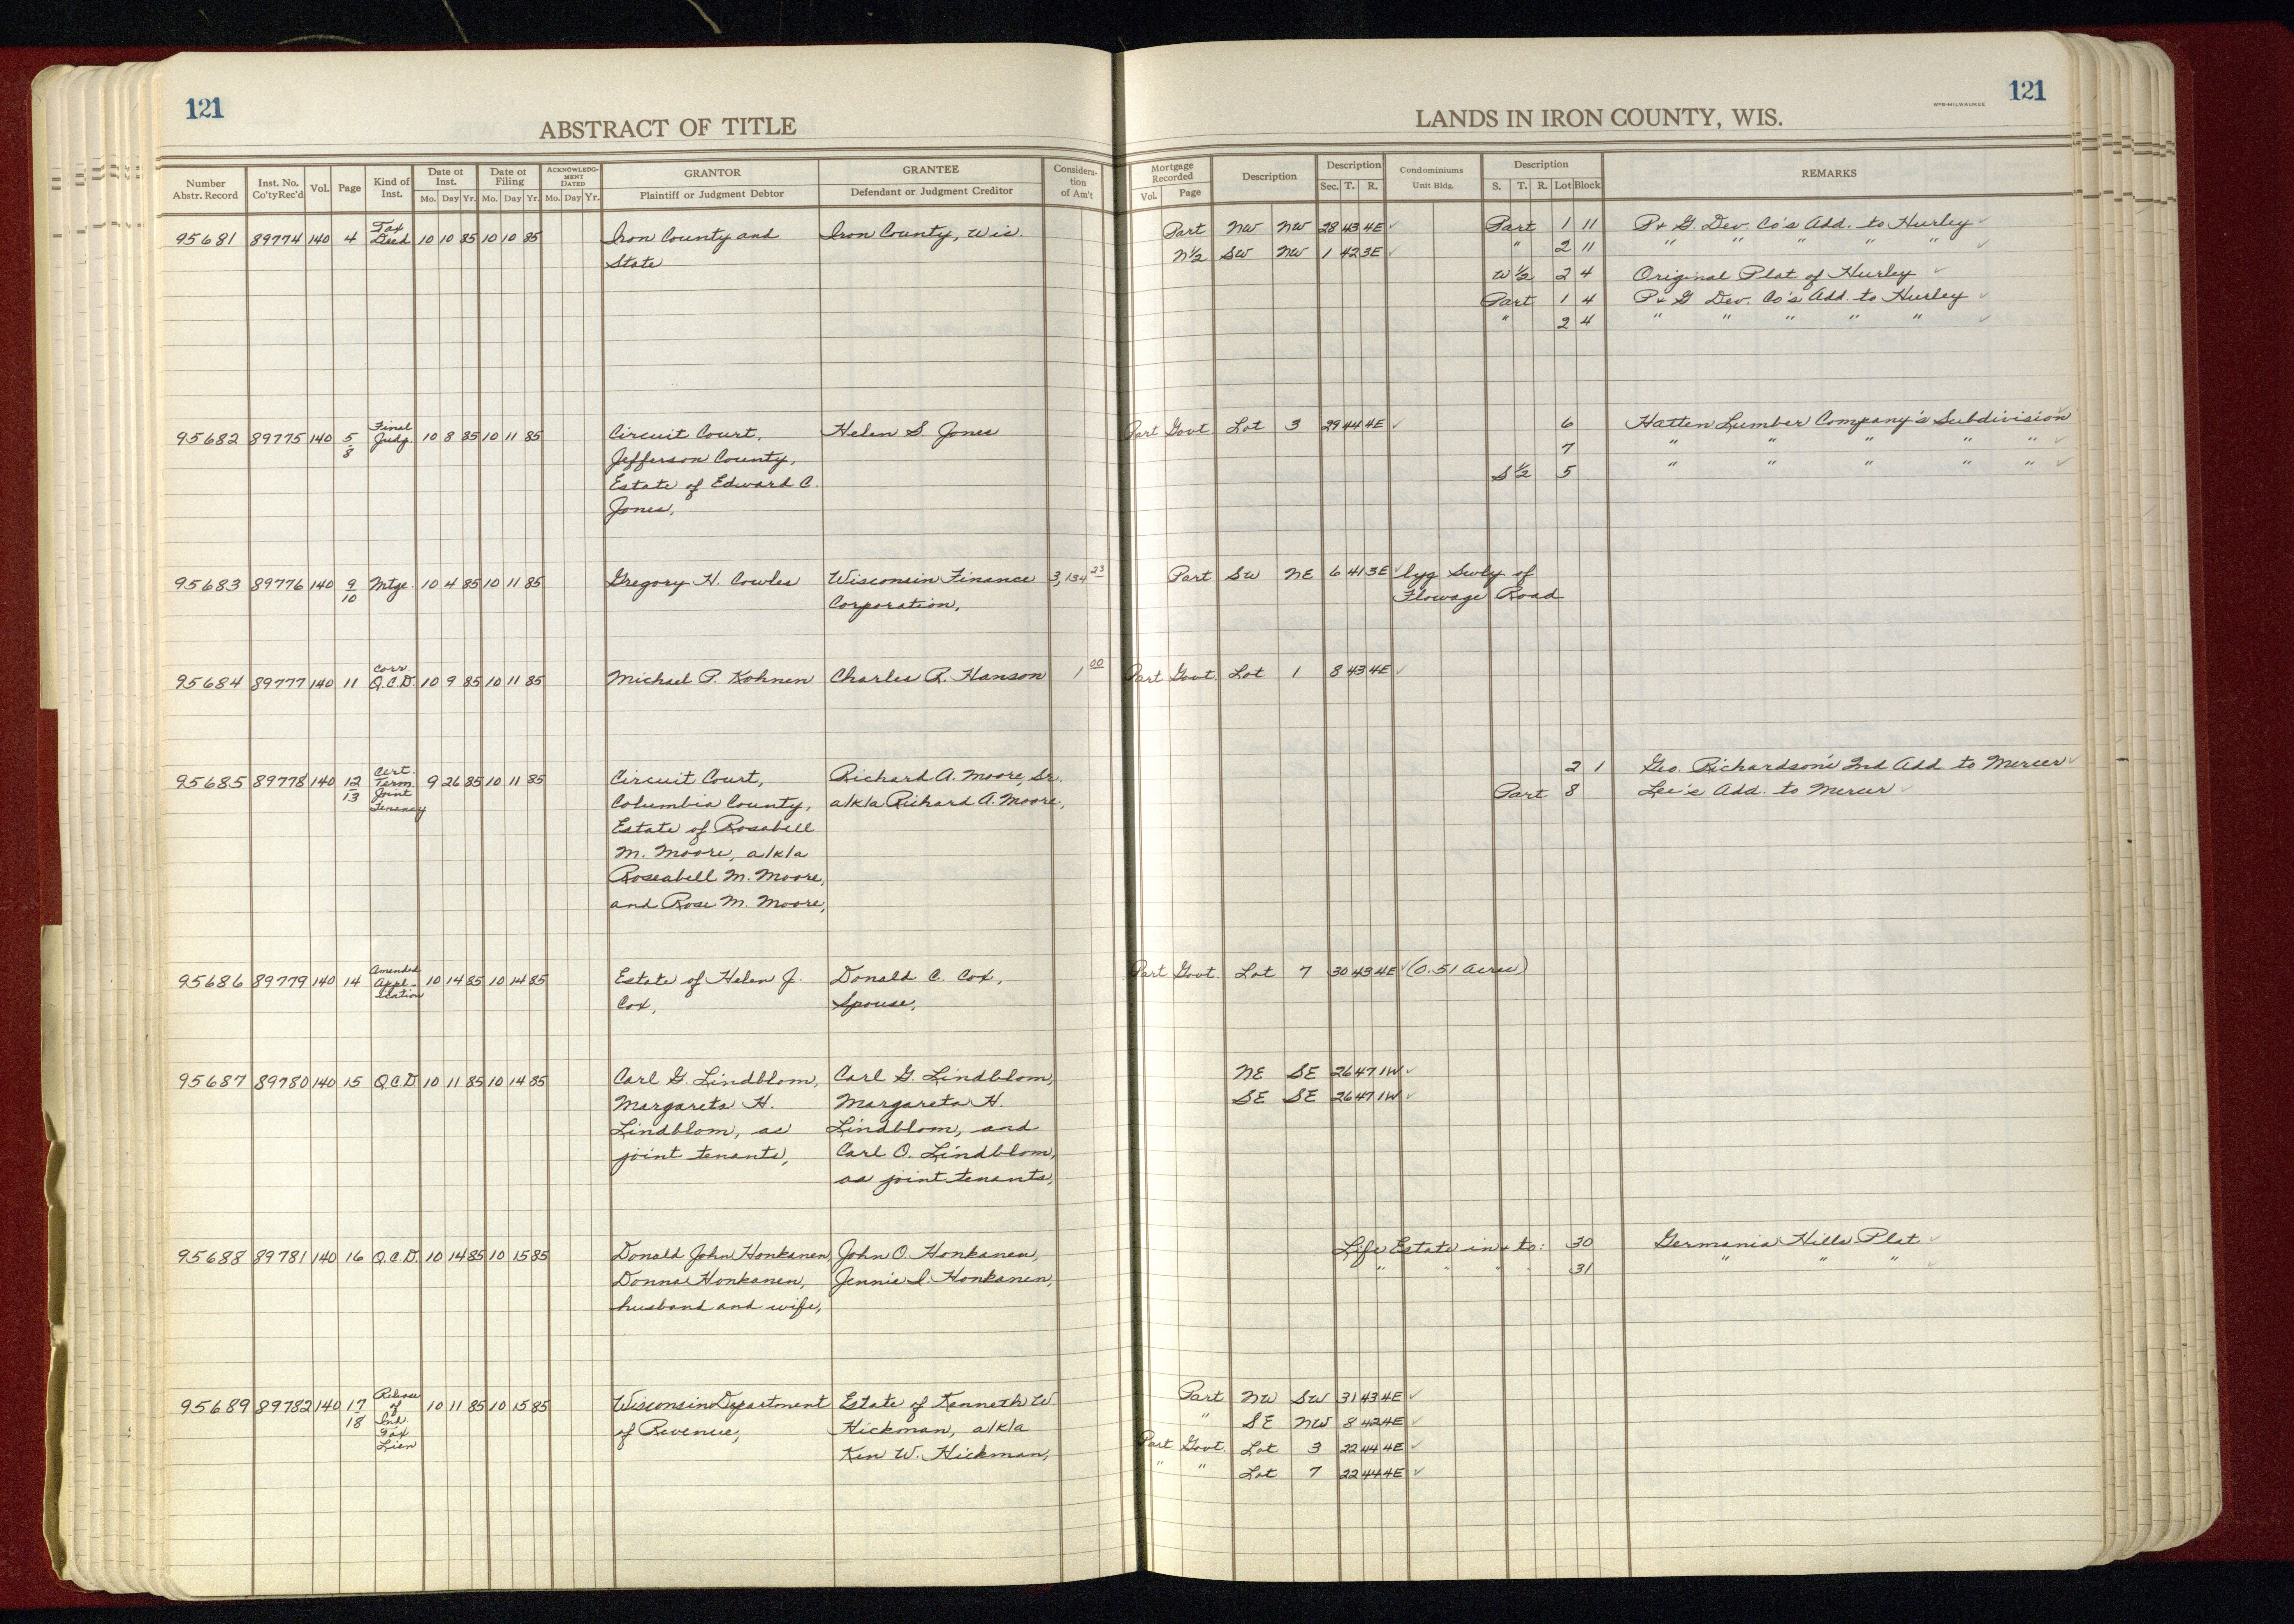 121
ABSTRACT OF TITLE
Number Abstr. Record Inst. No. Co'ty Rec'd Vol. Page Kind of Inst. Date of Inst. Mo. Day Yr. Date of Filing Mo. Day Yr. ACKNOWLEDGMENT DATED Mo. Day Yr. GRANTOR Plaintiff or Judgment Debtor GRANTEE Defendant or Judgment Creditor Consideration of Am't
95681 89774 140 4 Tax Deed 10 10 85 10 10 85 Iron County and Iron County, Wis.
State
95682 89775 140 5/8 Final Judg. 10 8 85 10 11 85 Circuit Court, Helen S. Jones
Jefferson County,
Estate of Edward C.
Jones,
95683 89776 140 9/10 Mtge. 10 4 85 10 11 85 Gregory H. Cowles Wisconsin Finance 3,134 23
Corporation,
95684 89777 140 11 Corr. Q.C.D. 10 9 85 10 11 85 Michael P. Kohnen Charles R. Hanson 1 00
95685 89778 140 12/13 Cert. Term. Joint Tenancy 9 26 85 10 11 85 Circuit Court, Richard A. Moore, Sr.
Columbia County, a/k/a Richard A. Moore,
Estate of Rosabell
M. Moore, a/k/a
Roseabell M. Moore,
and Rose M. Moore,
95686 89779 140 14 Amended Appl-ication 10 14 85 10 14 85 Estate of Helen J. Donald C. Cox,
Cox, Spouse,
95687 89780 140 15 Q.C.D. 10 11 85 10 14 85 Carl G. Lindblom, Carl G. Lindblom,
Margareta H. Margareta H.
Lindblom, as Lindblom, and
joint tenants, Carl O. Lindblom,
as joint tenants,
95688 89781 140 16 Q.C.D. 10 14 85 10 15 85 Donald John Honkanen, John O. Honkanen,
Donna Honkanen, Jennie I. Honkanen,
husband and wife,
95689 89782 140 17/18 Release of Ind. Tax Lien 10 11 85 10 15 85 Wisconsin Department Estate of Kenneth W.
of Revenue, Hickman, a/k/a
Ken W. Hickman,
WPB-MILWAUKEE
121
LANDS IN IRON COUNTY, WIS.
Mortgage Recorded Vol. Page Description Description Sec. T. R. Condominiums Unit Bldg. Description S. T. R. Lot Block REMARKS
Part NW NW 28 43 4E ✓ Part 1 11 P & G. Dev. Co's Add. to Hurley ✓
N½ SW NW 1 42 3E ✓ " 2 11 " " " " " ✓
W½ 2 4 Original Plat of Hurley ✓
Part 1 4 P & G Dev. Co's Add. to Hurley ✓
" 2 4 " " " " " ✓
Part Govt. Lot 3 29 44 4E ✓ 6 Hatten Lumber Company's Subdivision ✓
7 " " " " " ✓
S½ 5 " " " " " ✓
Part SW NE 6 41 3E ✓ lyg Swly of
Flowage Road
Part Govt. Lot 1 8 43 4E ✓
2 1 Geo. Richardson's 2nd Add. to Mercer ✓
Part 8 Lee's Add. to Mercer ✓
Part Govt. Lot 7 30 43 4E ✓ (0.51 acres)
NE SE 26 47 1W ✓
SE SE 26 47 1W ✓
Life Estate in & to: 30 Germania Hills Plat ✓
" " " " 31 " " " ✓
Part NW SW 31 43 4E ✓
" SE NW 8 42 4E ✓
Part Govt. Lot 3 22 44 4E ✓
" " Lot 7 22 44 4E ✓